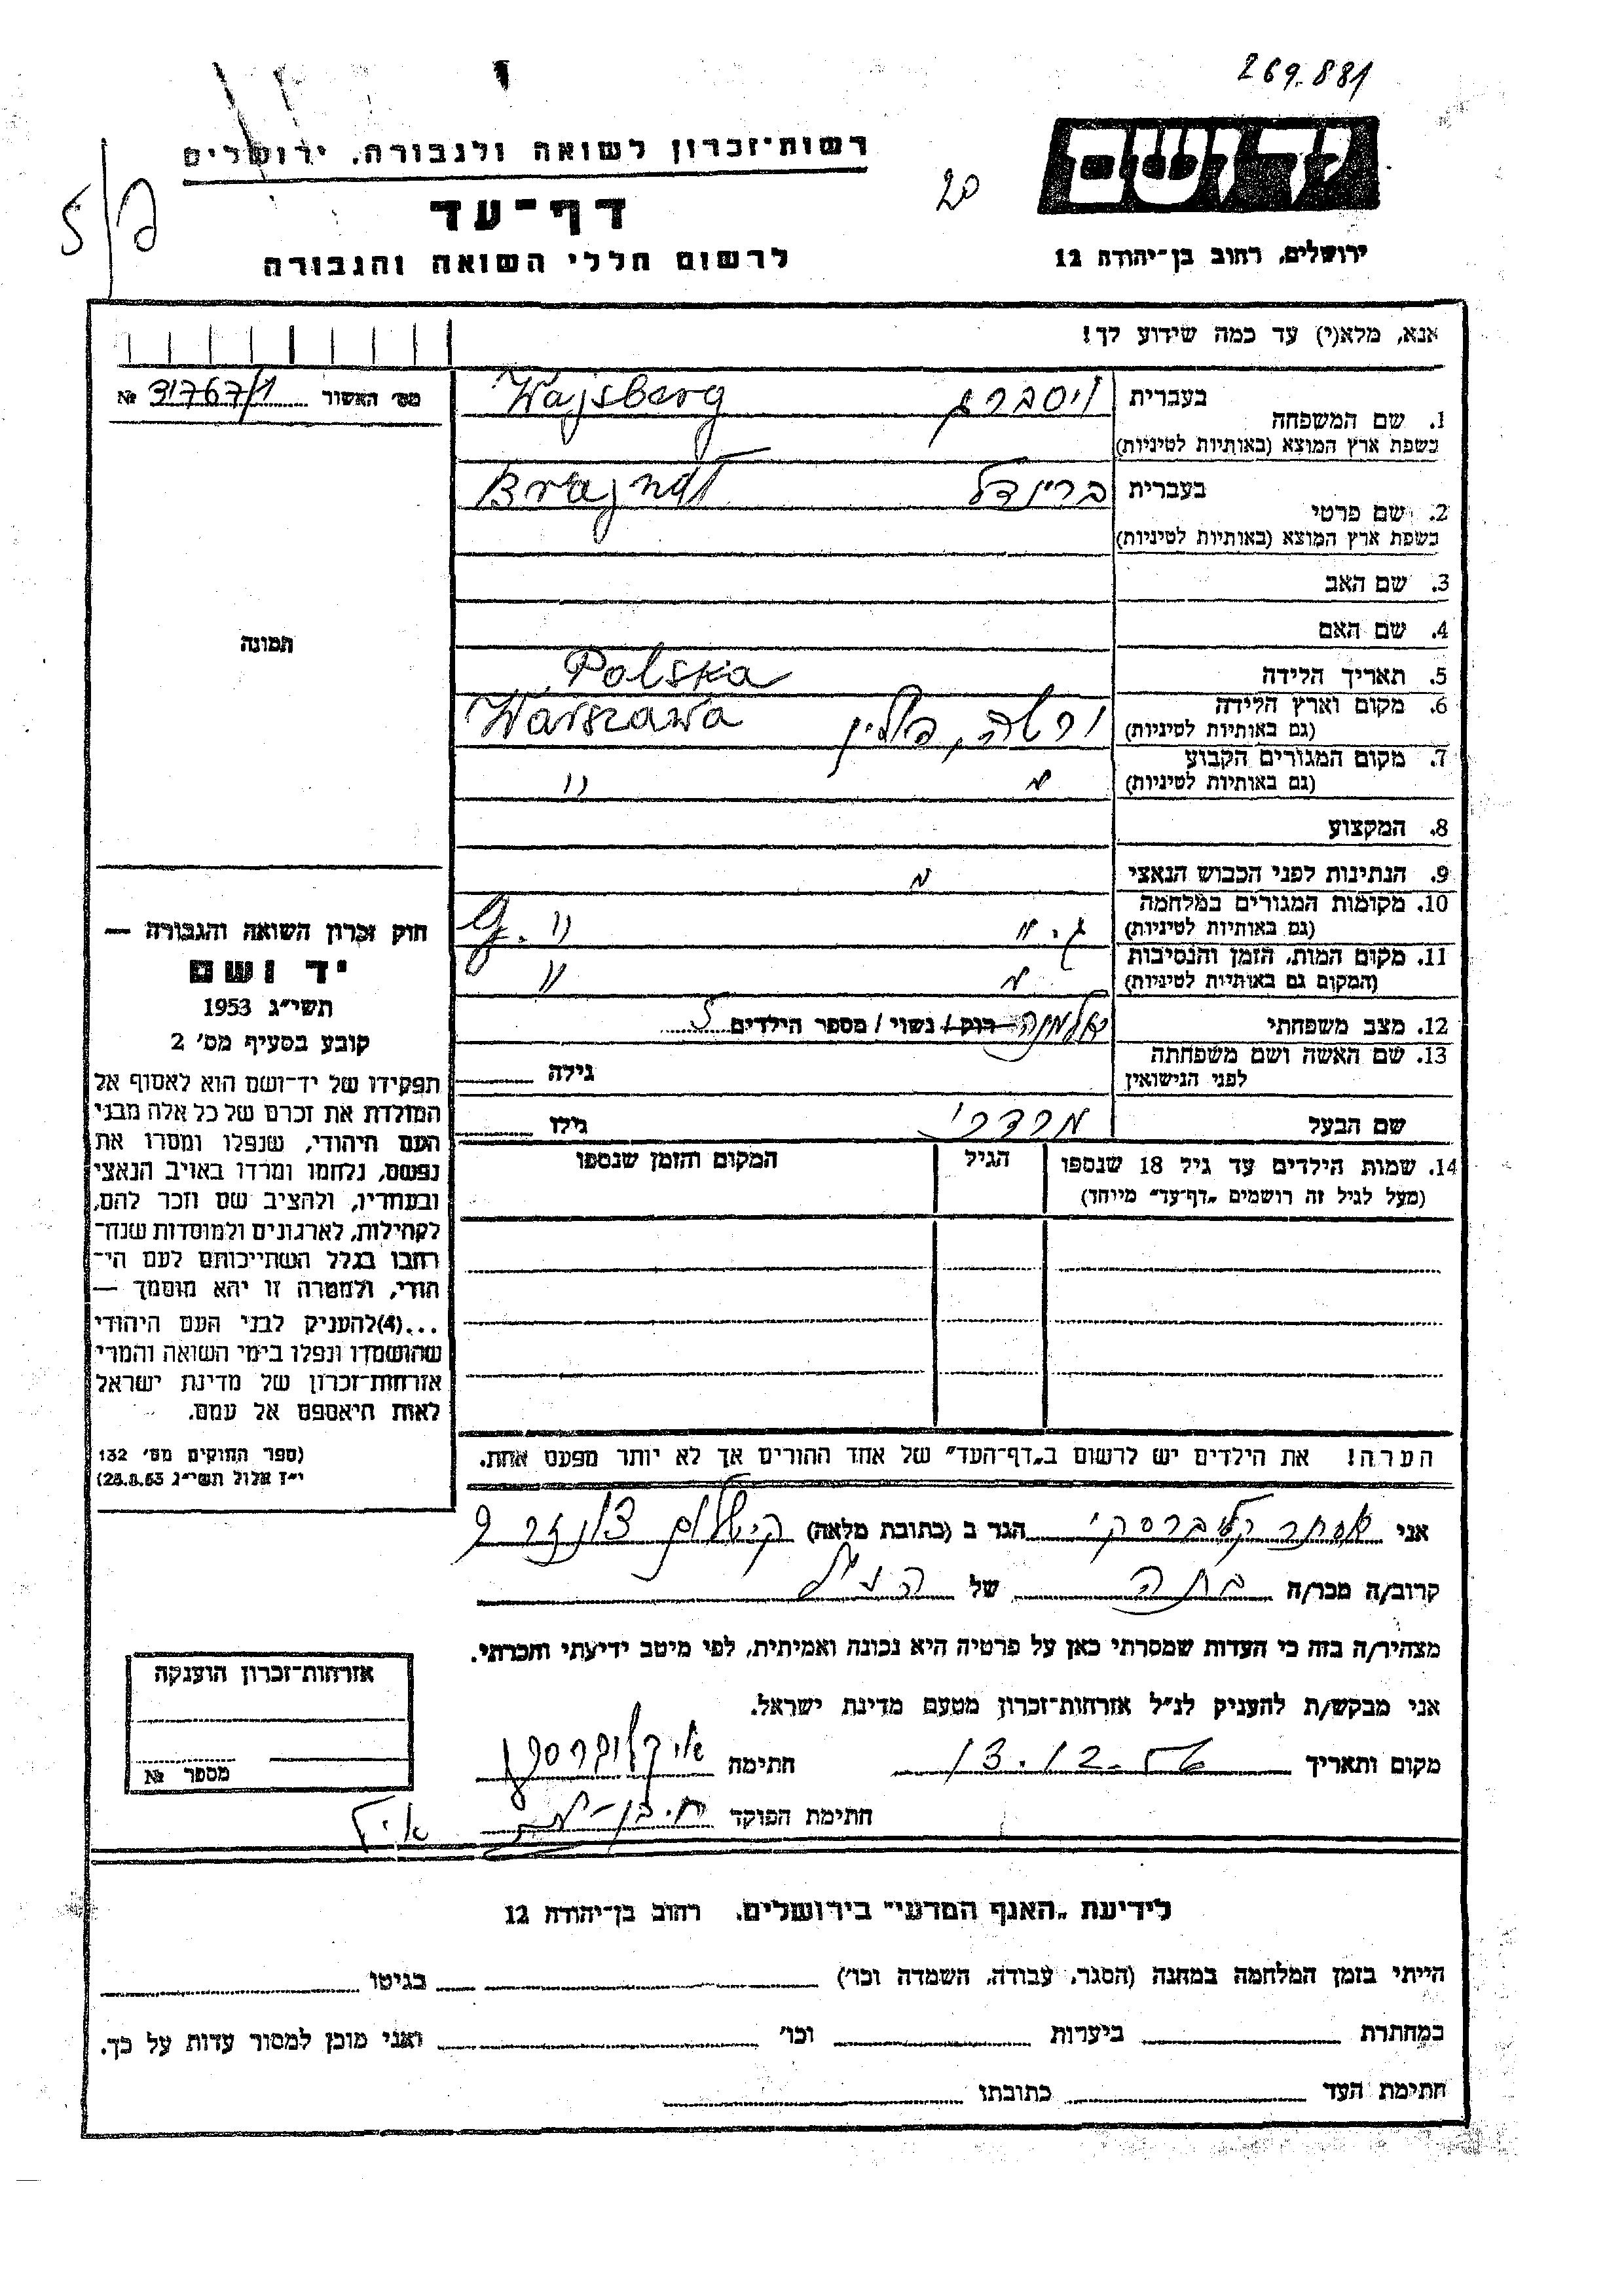 269.881
יד ושם
רשות־זכרון לשואה ולגבורה, ירושלים
20
דף־עד
לרשום חללי השואה והגבורה
ירושלים, רחוב בן־יהודה 12
אנא, מלא(י) עד כמה שידוע לך!
מס׳ האשור 31767/1 №
1. שם המשפחה בעברית ויסברג Wajsberg
בשפת ארץ המוצא (באותיות לטיניות)
2. שם פרטי בעברית בריינדל
בשפת ארץ המוצא (באותיות לטיניות)
3. שם האב
4. שם האם
5. תאריך הלידה
Polska
6. מקום וארץ הלידה ורשה, פולין Warszawa
(גם באותיות לטיניות)
7. מקום המגורים הקבוע " "
(גם באותיות לטיניות)
8. המקצוע
9. הנתינות לפני הכבוש הנאצי "
10. מקומות המגורים במלחמה ג. ו G. "
(גם באותיות לטיניות)
11. מקום המות, הזמן והנסיבות " "
(המקום גם באותיות לטיניות)
12. מצב משפחתי אלמנה רוק / נשוי / מספר הילדים 5
13. שם האשה ושם משפחתה גילה
לפני הנישואין
שם הבעל מרדכי גילו
14. שמות הילדים עד גיל 18 שנספו הגיל המקום והזמן שנספו
(מעל לגיל זה רושמים „דף־עד" מיוחד)
תמונה
חוק זכרון השואה והגבורה —
יד ושם
תשי״ג 1953
קובע בסעיף מס׳ 2
תפקידו של יד־ושם הוא לאסוף אל
המולדת את זכרם של כל אלה מבני
העם היהודי, שנפלו ומסרו את
נפשם, נלחמו ומרדו באויב הנאצי
ובעוזריו, ולהציב שם וזכר להם,
לקהילות, לארגונים ולמוסדות שנח־
רבו בגלל השתייכותם לעם הי־
הודי, ולמטרה זו יהא מוסמך —
...(4)להעניק לבני העם היהודי
שהושמדו ונפלו בימי השואה והמרי
אזרחות־זכרון של מדינת ישראל
לאות היאספם אל עמם.
(ספר החוקים מס׳ 132
י״ז אלול תשי״ג 28.8.53)
הערה! את הילדים יש לרשום ב„דף־העד" של אחד ההורים אך לא יותר מפעם אחת.
אני אסתר קליברסקי הגר ב (כתובת מלאה)
קרוב/ה מכר/ה בתה של הנ״ל
מצהיר/ה בזה כי העדות שמסרתי כאן על פרטיה היא נכונה ואמיתית, לפי מיטב ידיעתי והכרתי.
אני מבקש/ת להעניק לנ״ל אזרחות־זכרון מטעם מדינת ישראל.
מקום ותאריך 13.12. חתימה
חתימת הפוקד
אזרחות־זכרון הוענקה
מספר №
לידיעת „האגף המדעי" בירושלים, רחוב בן־יהודה 12
הייתי בזמן המלחמה במחנה (הסגר, עבודה, השמדה וכו׳) בגיטו
במחתרת ביערות וכו׳ ואני מוכן למסור עדות על כך.
חתימת העד כתובתו